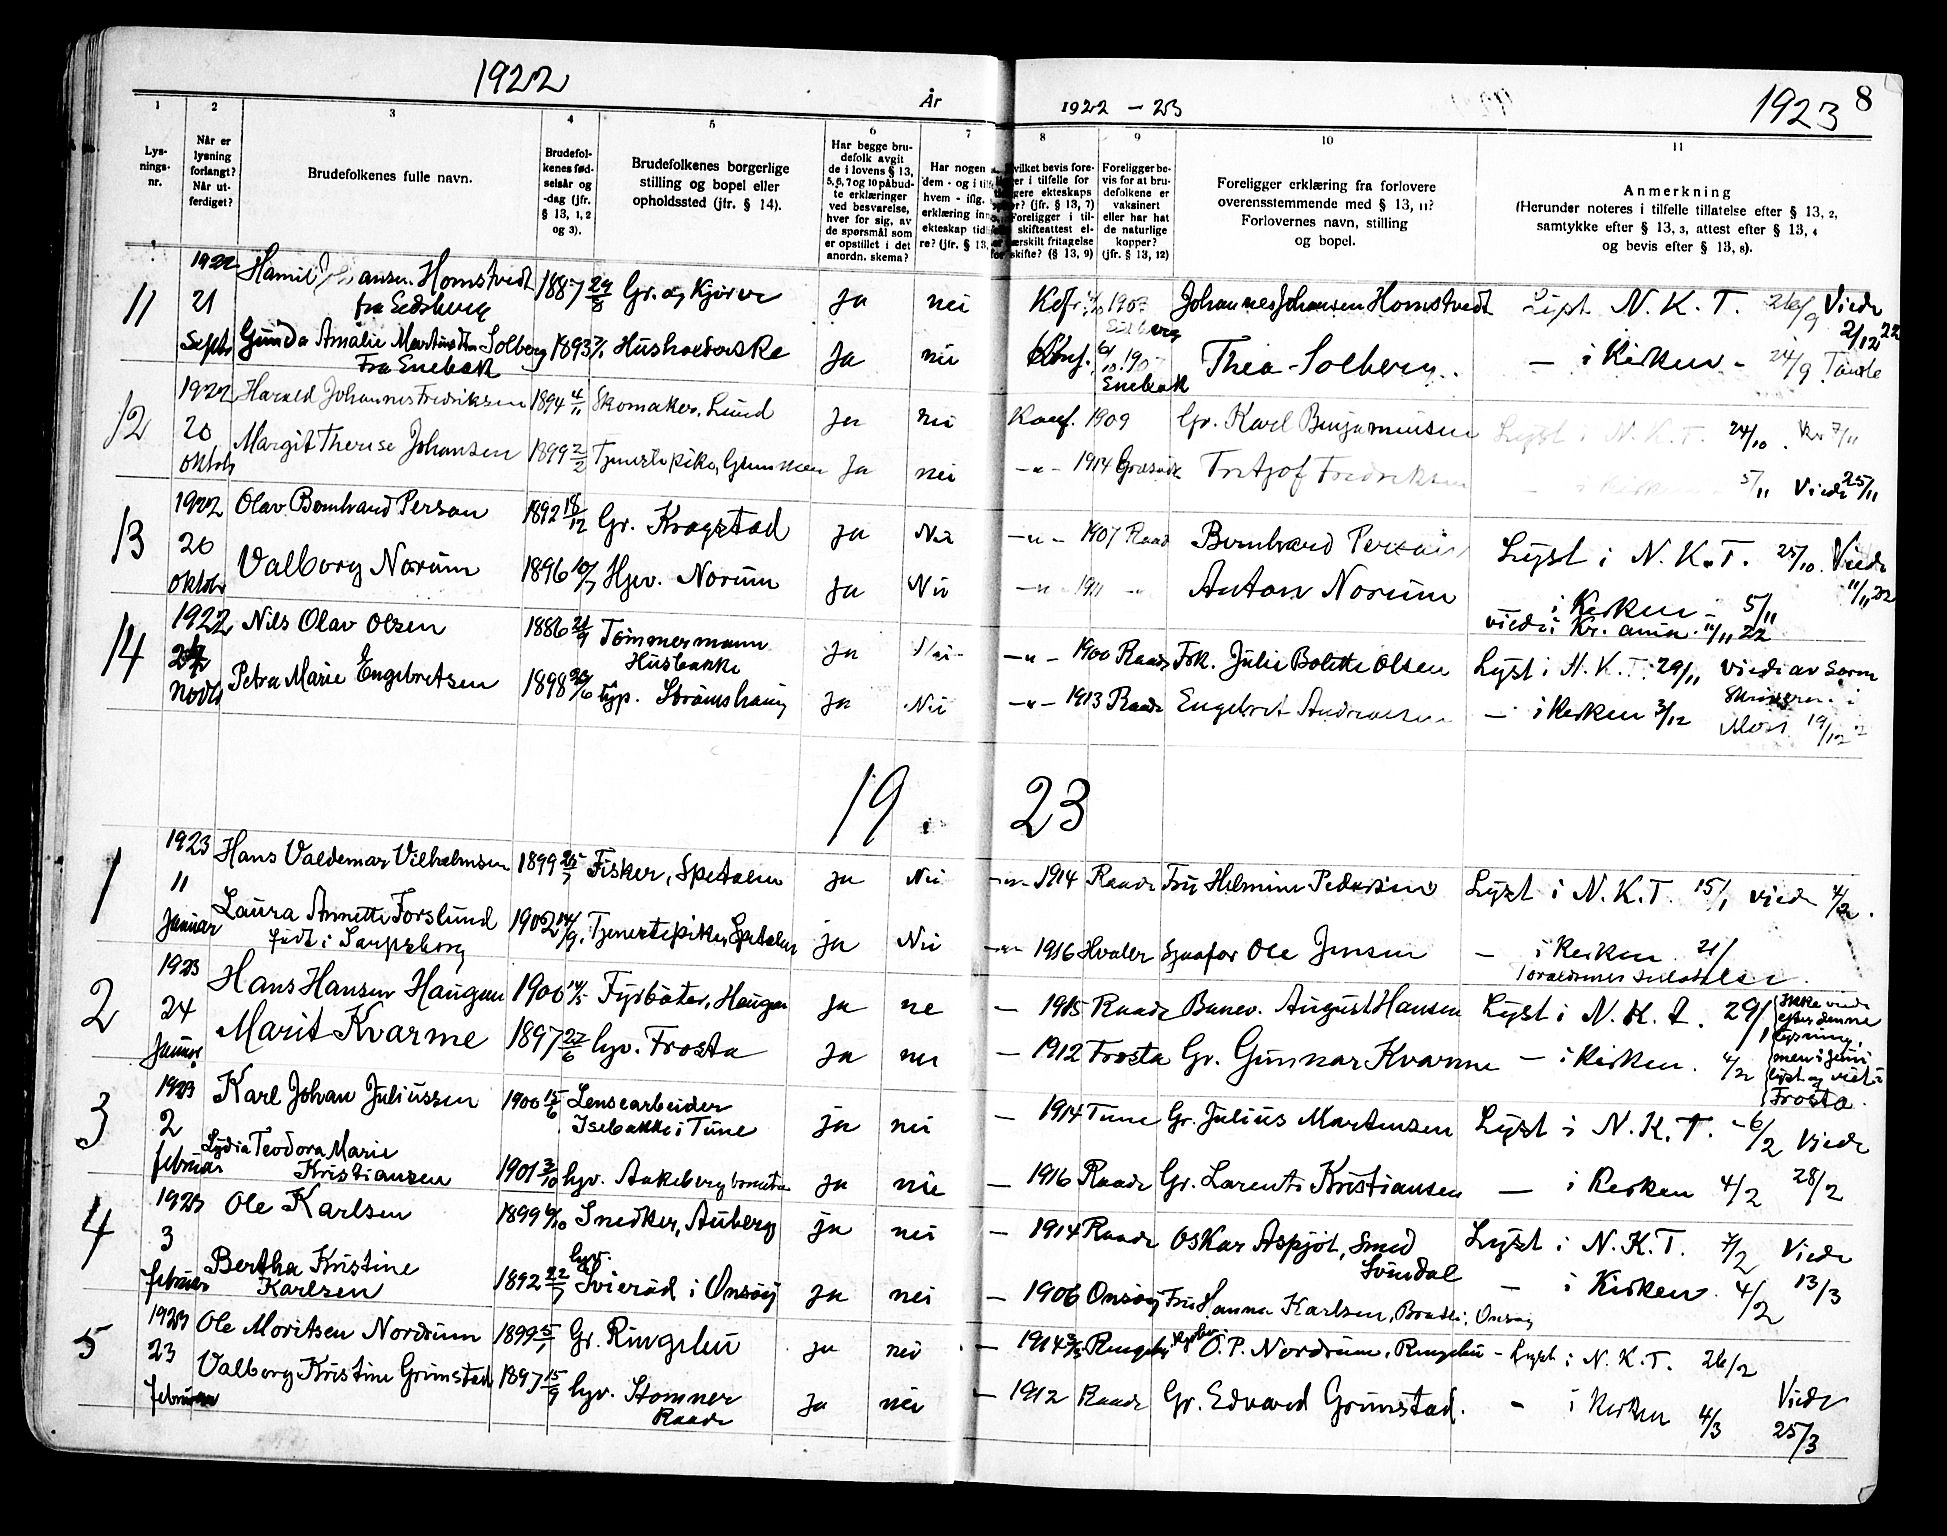 1922
År
1922 - 23
1923
8
1
2
3
4
5
6
7
8
9
10
11
Lys-
nings-
nr.
Når er
lysning
forlangt?
Når ut-
ferdiget?
Brudefolkenes fulle navn.
Brudefol-
kenes fød-
selsår og
-dag (jfr.
§ 13, 1, 2
og 3).
Brudefolkenes borgerlige
stilling og bopel eller
opholdssted (jfr. § 14).
Har begge bru-
defolk avgit
de i lovens § 13,
5, 6, 7 og 10 påbud-
te erklæringer
ved besvarelse,
hver for sig, av
de spørsmål som
er opstillet i det
anordn. skema?
Har nogen
dem - og i
hvem - iflg.
erklæring
ekteskap tid
re? (jfr. § 13,
hvilket bevis fore-
i tilfelle for
ekteskaps
(jfr. § 13, 7)
Foreligger i til-
skifteattest el-
særskilt fritagelse
skifte? (§ 13, 9)
Foreligger be-
vis for at bru-
defolkene er
vaksinert
eller har hat
de naturlige
kopper?
(jfr. § 13, 12)
Foreligger erklæring fra forlovere
overensstemmende med § 13, 11?
Forlovernes navn, stilling
og bopel.
Anmerkning
(Herunder noteres i tilfelle tillatelse efter § 13, 2,
samtykke efter § 13, 3, attest efter § 13, 4
og bevis efter § 13, 8).
11 1922 21 Septr Hamil Johansen Homstvedt 1887 24/8 Gr. ja nei 1902 Johannes Johansen Homstvedt Lyst N. K. T. 26/9 Viede 2/12 22
fra Eidsberg
Gunda Amalie Solberg 1893 Husholderske ja nei Konf. Enebak Thea Solberg - i Kirken - 24/9
Fra Enebak
12 1922 20 Oktob Harald Johannes Fredriksen 1894 4/11 Skomaker, Lund ja nei Konf. 1909 Gr. Karl Benjaminsen Lyst i N. K. T. 24/10
Margit Therese Johansen 1899 2/2 Tjenestepike, ja nei -"- 1914 Fritjof Fredriksen - i Kirken - 5/11 Viede 25/11
13 1922 20 Oktob Olav Bernhard Person 1892 18/12 Gr. Krogstad ja Nei -"- 1907 Raade Bernhard Person Lyst i N. K. T. 25/10 Viede 11/11 22
Valborg Norum 1896 10/7 Hjv. Norum ja Nei -"- 1911 -"- Anton Norum i Kirken - 5/11
viede i Kr.ania 11/11 22
14 1922 Novb Nils Olav Olsen 1886 Tømmermann ja Nei -"- 1900 Raade Frk. Julie Bolette Olsen Lyst i N. K. T. 29/11 Viedi av Sorn
Husbakke
Petra Marie Engebretsen 1898 hjp. Strømshaug ja Nei -"- 1913 Raade Engebret Andreassen - i Kirken 3/12 Skriveren i
Moss 19/12
19 23
1 1923 11 Januar Hans Valdemar Vilhelmsen 1899 25/7 Fisker, Spetalen ja Nei -"- 1914 Raade Fru Helmine Pedersen Lyst i N. K. T. 15/1 viede 4/2.
Laura Annette Forslund 1902 14/9 Tjenestepike, Spetalen ja Nei -"- 1916 Hvaler Ole Jensen - i Kirken 21/
født i Sarpsborg
2 1923 24 Januar Hans Hansen Haugen 1900 14/5 Fyrbøter, Haugen ja ne - 1915 Raade Banev. August Hansen Lyst i N. K. T. 29/1 Ikke viede
efter denne
lysning,
Marit Kvarme 1897 27/6 hjv. Frosta ja nei - 1912 Frosta Gr. Gunnar Kvarme - i Kirken. 4/2 men igjen
lyst og viet i
Frosta.
3 1923 2 februar Karl Johan Juliussen 1900 15/6 Lensearbeider ja nei - 1914 Tune Gr. Julius Martinsen Lyst i N. K. T. - 6/2 Viede
Isebakke i Tune
Lydia Teodora Marie
Kristiansen 1901 3/10 hjv. Aakeberg ja nei - 1916 Raade Gr. Larents Kristiansen - i Kirken 4/2 28/2
4 1923 3 februar Ole Karlsen 1899 Snedker, Auberg ja nei - 1914 Raade Oskar Aspjøl, Smed Lyst i N. K. T. 7/2 Viede
Sundal
Bertha Kristine
Karlsen 1892 22/7 hjv. Svierød i Onsøy ja nei - 1906 Onsøy Fru Hanna Karlsen, Onsøy - i Kirken 4/2 13/3
5 1923 23 februar Ole Moritsen Nordrum 1899 Gr. Ringebu ja nei - 1914 Ringebu O. P. Nordrum, Ringebu - Lyst i N. K. T. 26/2
Valborg Kristine Grimstad 1897 15/9 hjv. Stomner ja nei - 1912 Raade Gr. Edvard Grimstad. - i Kirken 4/3 Viede 25/3
Raade